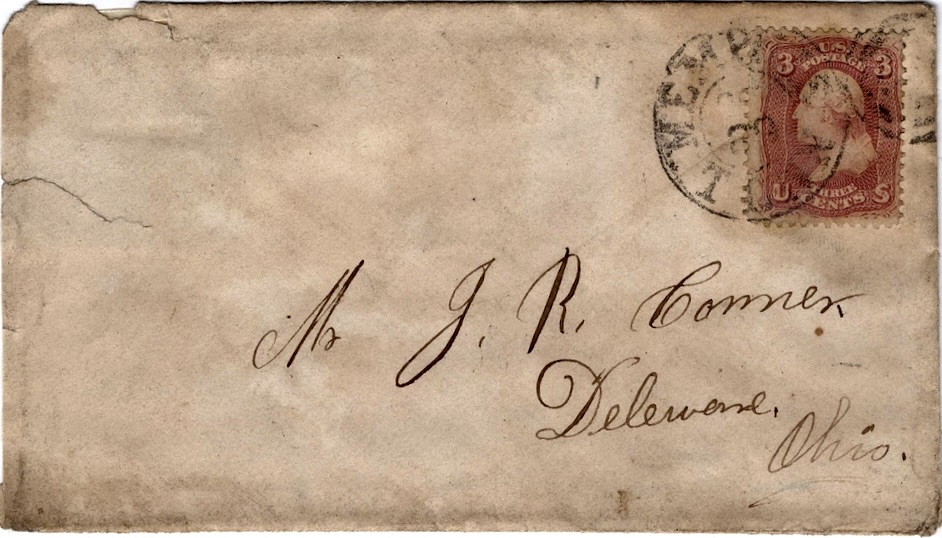 MEMP
3 U.S. 3
POSTAGE
THREE
U CENTS S
Mr J. R. Conner
Delewane,
Ohio.